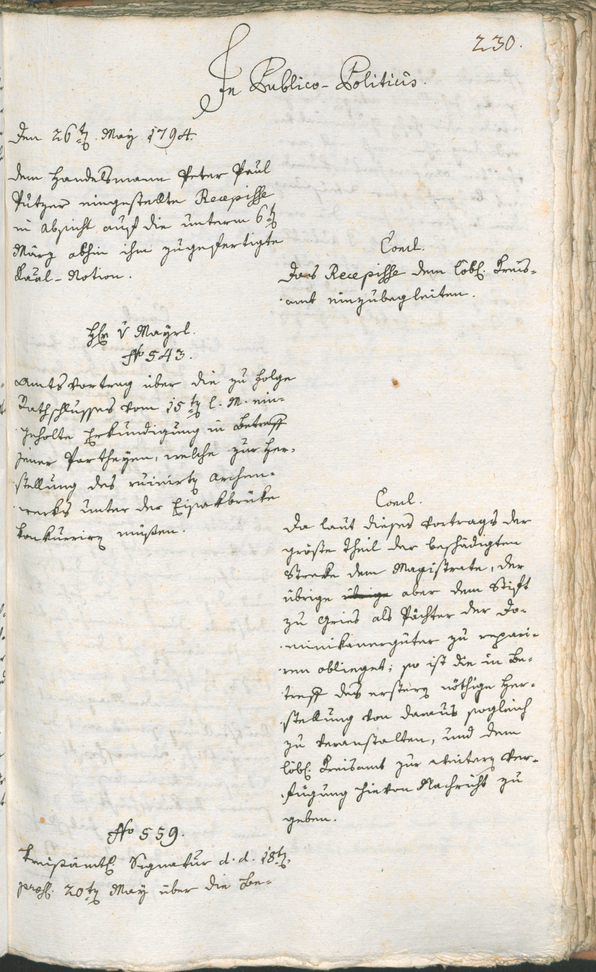 230.
In Publico-Politicis.
Den 26tn May 1794.
Dem Handelsmann Peter Paul
Putzer eingestellte Recepisse
in Absicht auf die unterm 6tn
März abhin ihm zugefertigte
Kaal-Notion.
Concl.
Das Recepisse dem löbl. Kreis-
amt einzubegleiten.
Hr v Mayrl.
No 543.
Amtsvortrag über die zu folge
Rathschlusses vom 15tn l. M. ein-
geholte Erkundigung in Betreff
jener Partheyen, welche zur Her-
stellung des ruinirtn Archen-
werks unter der Eisakbrüke
konkurirn müßen.
Concl.
Da laut dieses Vortrags der
größte Theil der beschädigten
Streke dem Magistrate, der
übrige aber dem Stift
zu Gries als Pächter der Do-
minikanergüter zu repari-
ren obliegt; so ist die in Be-
treff des erstern nöthige Her-
stellung von daraus sogleich
zu veranstalten, und dem
löbl. Kreisamt zur weitern Ver-
fügung hievon Nachricht zu
geben.
No 559.
Kreisämtl. Signatur d. d. 18tn,
praes. 20tn May über die Be-